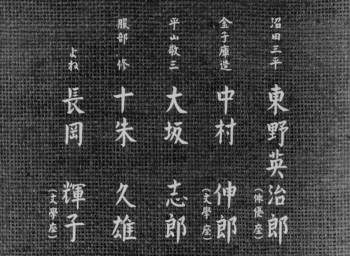 沼田三平 東野英治郎（俳優座）
金子庫造 中村伸郎（文學座）
平山敬三 大坂志郎
服部修 十朱久雄
よね 長岡輝子（文學座）